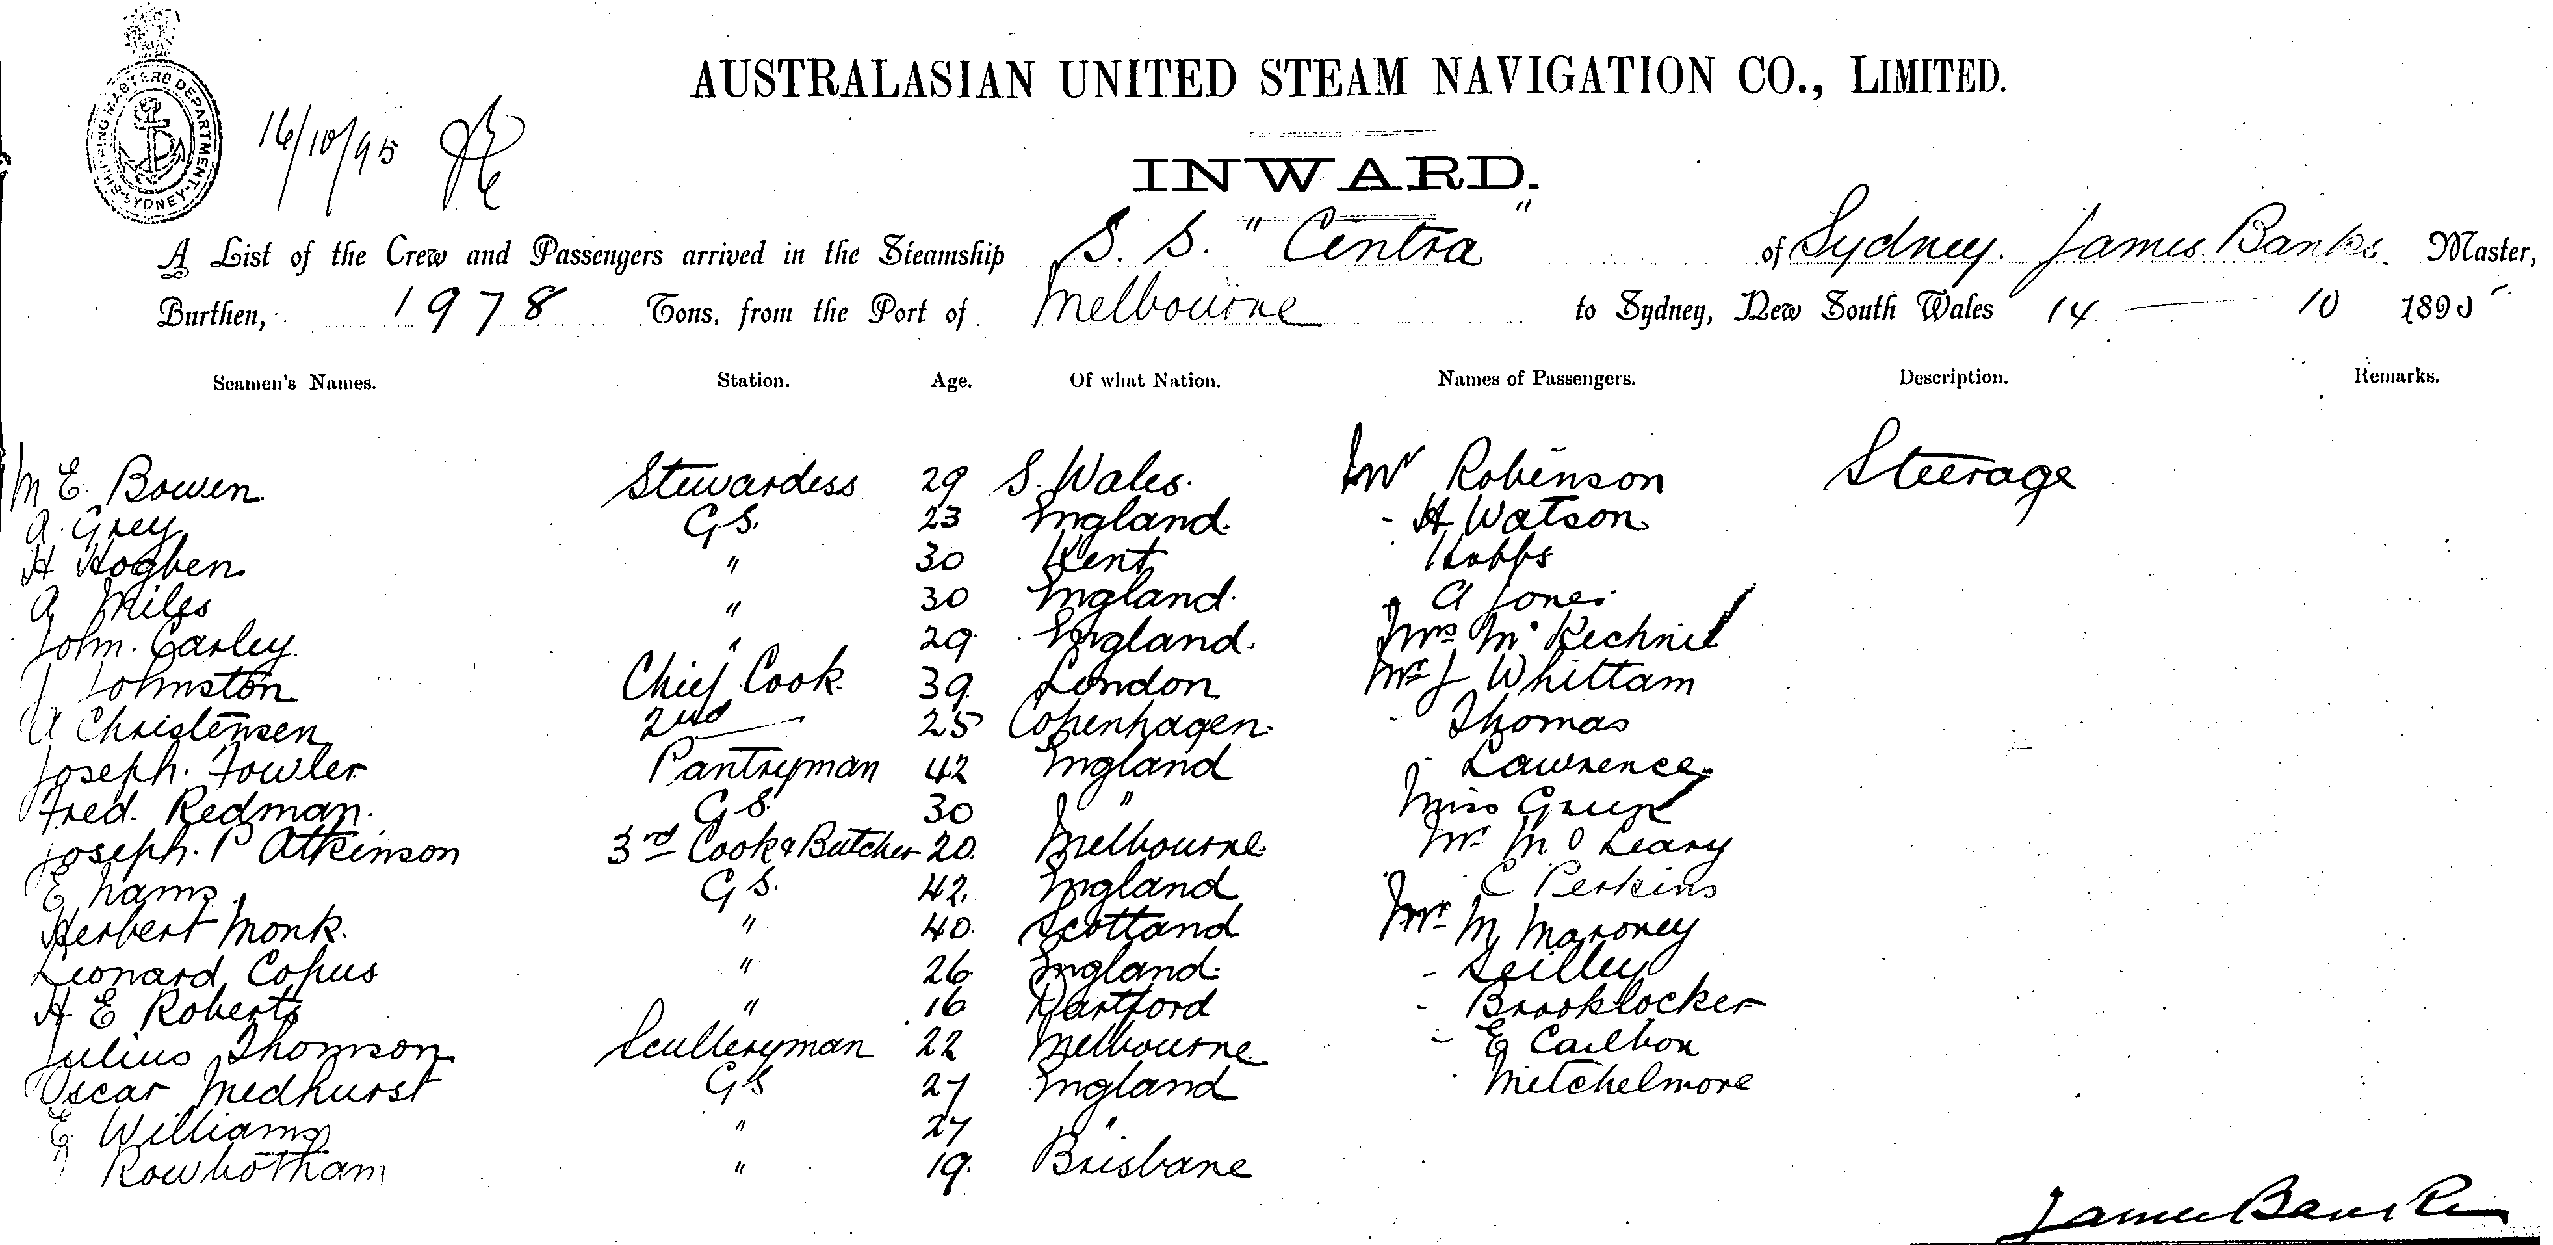 SHIPPING MASTERS DEPARTMENT SYDNEY
16/10/95
AUSTRALASIAN UNITED STEAM NAVIGATION CO., LIMITED.
INWARD.
A List of the Crew and Passengers arrived in the Steamship S. S. "Centra" of Sydney. James Banks. Master,
Burthen, 1978 Tons, from the Port of Melbourne to Sydney, New South Wales 14 — 10 1895
Seamen's Names. Station. Age. Of what Nation. Names of Passengers. Description. Remarks.
M E. Bowen Stewardess 29 S. Wales. Mr Robinson Steerage
A. Grey G S. 23 England. - H Watson
H Hogben " 30 Kent Hobbs
A Miles " 30 England. A Jones
John. Carley " 29 England. Mrs McKechnie
J Johnston Chief Cook 39 London Mr J Whittam
Christensen 2nd — 25 Copenhagen. - Thomas
Joseph. Fowler Pantryman 42 England - Lawrence
Fred. Redman. G S. 30 " Miss Green
Joseph. P Atkinson 3rd Cook & Butcher 20. Melbourne. Mr M O Leary
E G S. 42. England C Perkins
Herbert Monk. " 40. Scotland Mr M Maroney
Leonard Copus " 26 England. -
H E Roberts " 16 Dartford - Brooklocker
Julius Thomson Sculleryman 22 Melbourne - E
Oscar Medhurst G S 27 England Mitchelmore
E Williams " 27 "
Rowbotham " 19. Brisbane
James Banks